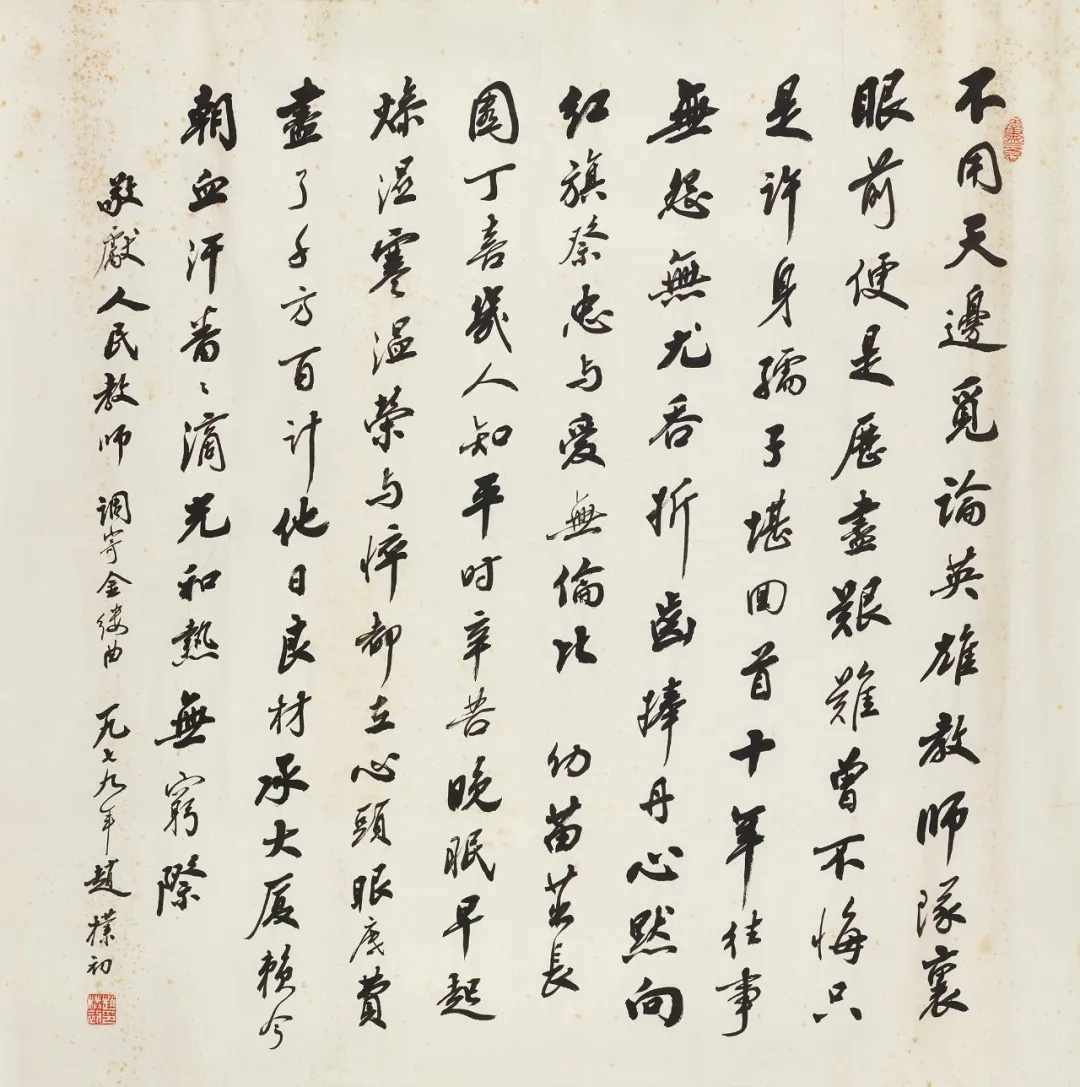 不用天邊覓論英雄教師隊裏
眼前便是歷盡艱難曾不悔只
是許身孺子堪回首十年往事
無怨無尤吞折齒捧丹心默向
紅旗祭忠与愛無倫比 幼苗茁長
園丁喜幾人知平时辛苦晚眠早起
燥湿寒温榮与悴都立心頭眼底費
盡了千方百计他日良材承大厦賴今
朝血汗番〻滴光和熱無窮際
敬獻人民教师 调寄金缕曲 一九七九年 趙樸初
趙樸初